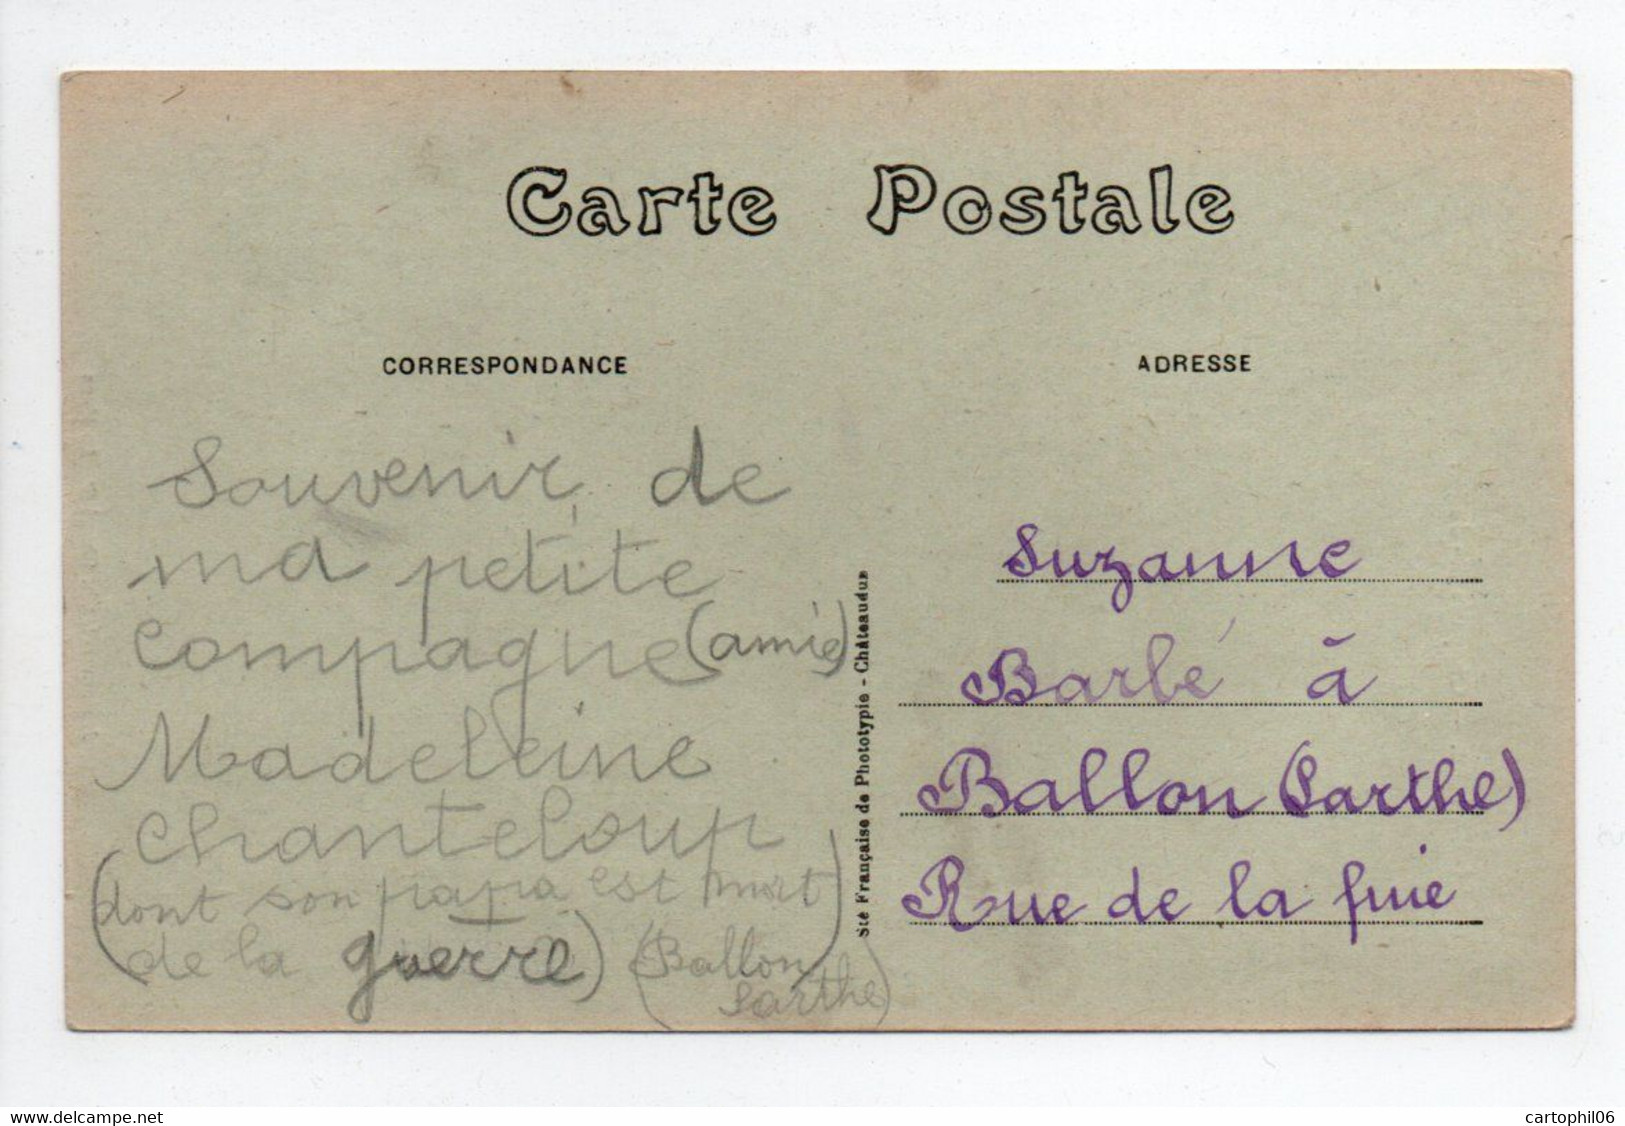 Carte Postale
CORRESPONDANCE
Souvenir de
ma petite
compagne (amie)
Madeleine
Chanteloup
(dont son papa est mort
de la guerre) (Ballon
Sarthe)
Sté Française de Phototypie - Châteaudun
ADRESSE
Suzanne
Barbé à
Ballon (Sarthe)
Rue de la fuie
www.delcampe.net
cartophil06